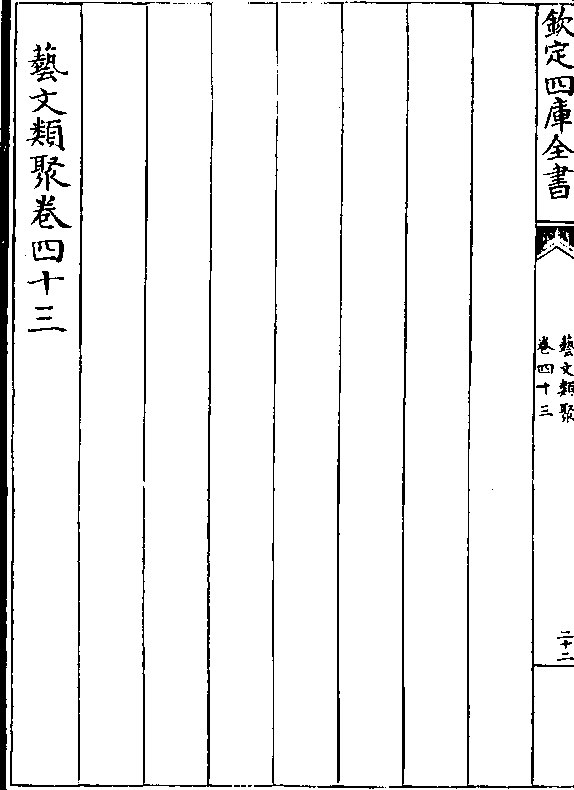 欽定四庫全書
藝文類聚
卷四十三
二十二
藝文類聚卷四十三